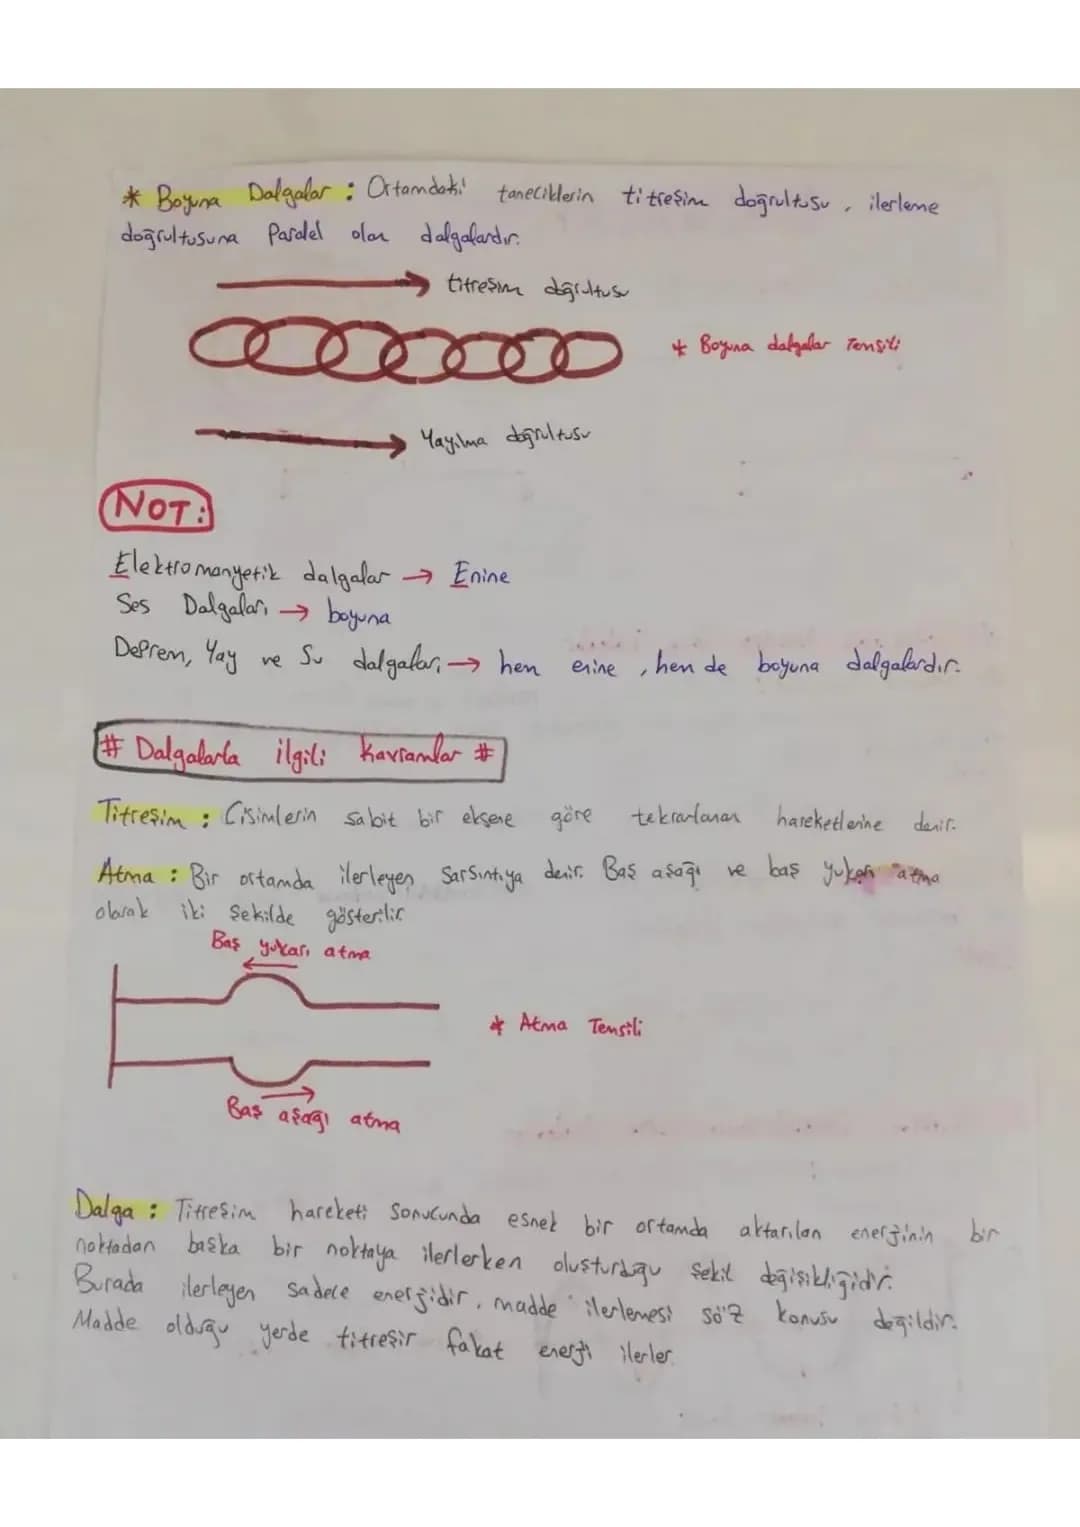 * Boyuna Dalgalar : Ortamdaki taneciklerin titreşim doğrultusu, ilerleme
doğrultusuna Paralel olan dalgalardır.
titreşim doğrultusu
* Boyuna dalgalar Temsili
Yayılma doğrultusu
NOT:
Elektromanyetik dalgalar → Enine
Ses Dalgaları → boyuna
Deprem, Yay ve Su dalgaları → hem enine, hem de boyuna dalgalardır.
# Dalgalarla ilgili kavramlar #
Titreşim : Cisimlerin sabit bir eksene göre tekrarlanan hareketlerine denir.
Atma : Bir ortamda ilerleyen sarsıntıya denir. Baş aşağı ve baş yukarı atma
olarak iki şekilde gösterilir
Baş yukarı atma
* Atma Temsili
Baş aşağı atma
Dalga : Titreşim hareketi sonucunda esnek bir ortamda aktarılan enerjinin bir
noktadan başka bir noktaya ilerlerken oluşturduğu şekil değişikliğidir.
Burada ilerleyen sadece enerjidir, madde ilerlemesi söz konusu değildir.
Madde olduğu yerde titreşir fakat enerji ilerler.